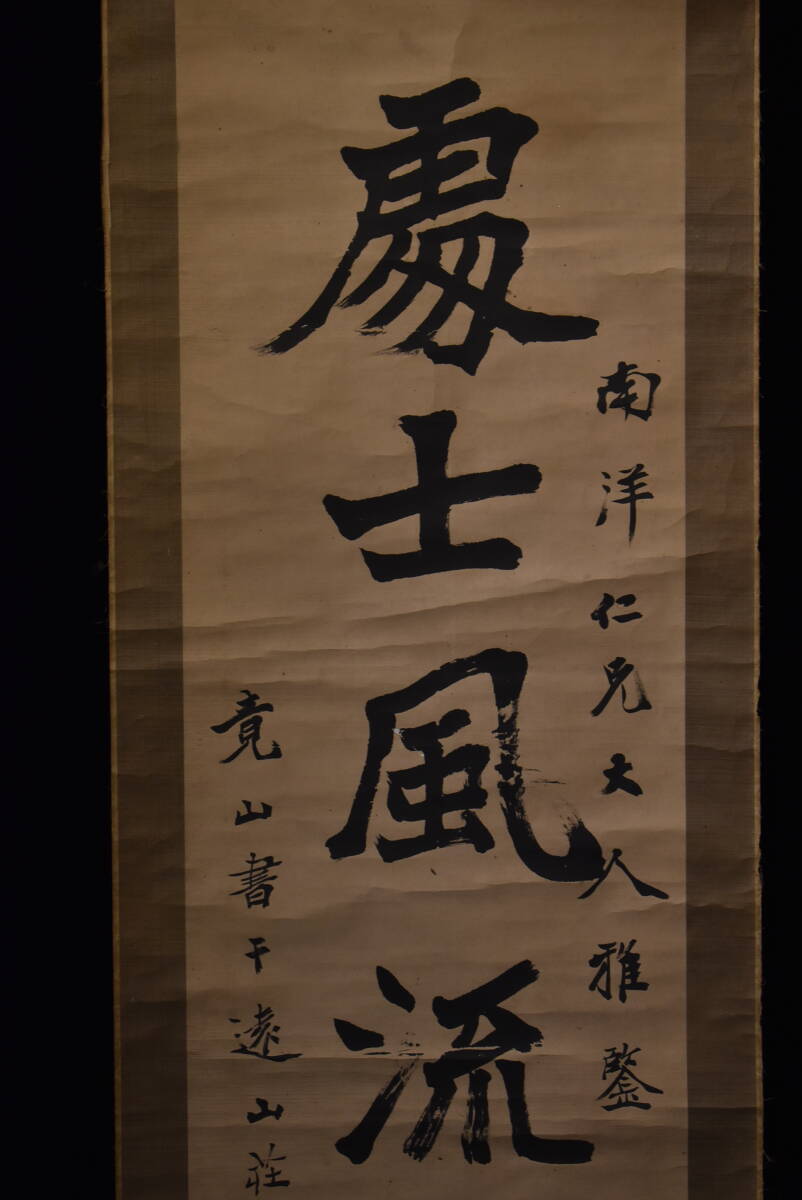 南洋仁兄大人雅鑒
處士風流
竟山書于遠山荘